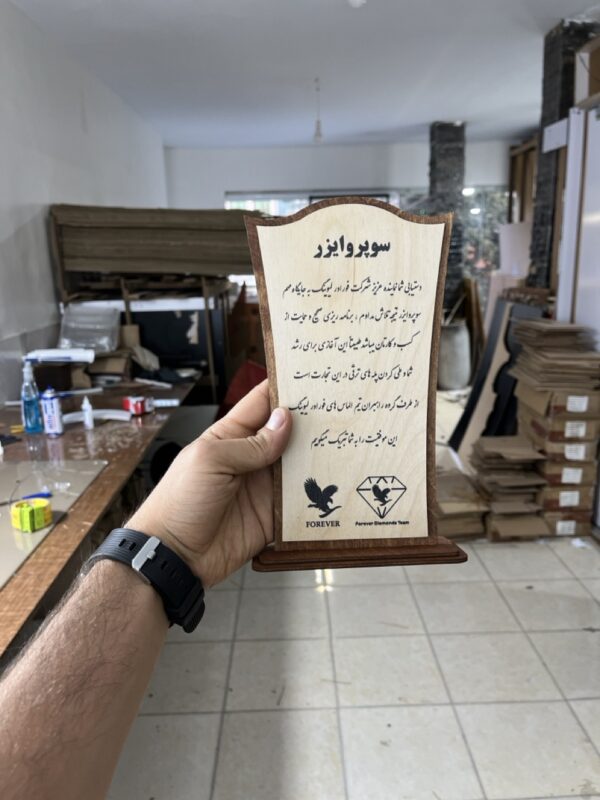 سوپروایزر
دستیابی شما نماینده عزیز شرکت فوراور لیوینگ به جایگاه مهم
سوپروایزر نتیجه تلاش مداوم ، برنامه ریزی صحیح و حمایت از
کسب و کارتان میباشد طبیعتاً این آغازی برای رشد
شما و طی کردن پله های ترقی در این تجارت است
از طرف گروه راهبران تیم الماس های فوراور لیوینگ
این موفقیت را به شما تبریک میگویم
FOREVER
Forever Diamonds Team